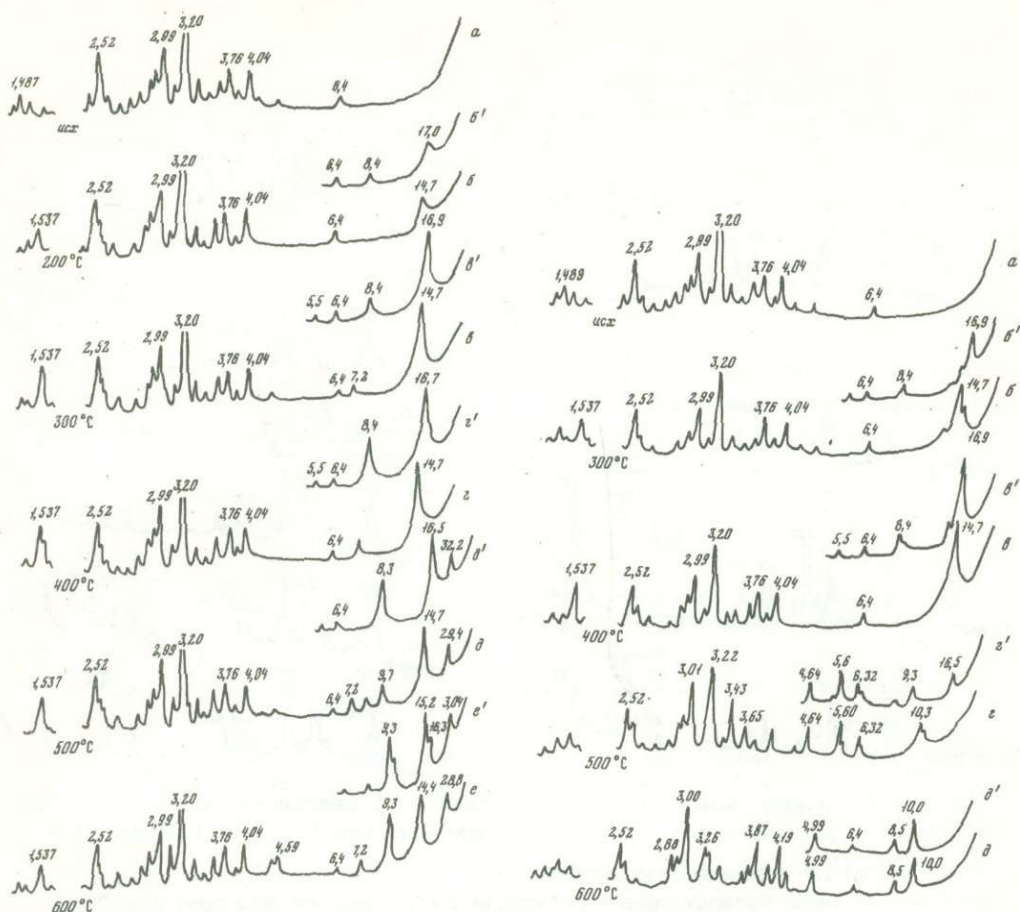 3,20
2,52 2,99 3,76 4,04 6,4 а
1,487
исх
6,4 8,4 17,0 б'
3,20
1,537 2,52 2,99 3,76 4,04 6,4 14,7 б
200°C
5,5 6,4 8,4 16,9 в'
3,20
1,537 2,52 2,99 3,76 4,04 6,4 7,2 14,7 в
300°C
5,5 6,4 8,4 16,7 г'
3,20
1,537 2,52 2,99 3,76 4,04 6,4 14,7 г
400°C
6,4 8,3 16,5 32,2 д'
3,20
1,537 2,52 2,99 3,76 4,04 6,4 7,2 9,7 14,7 29,4 д
500°C
9,3 15,2 16,3 3,04 е'
3,20
1,537 2,52 2,99 3,76 4,04 4,59 6,4 7,2 9,3 14,4 28,8 е
600°C
3,20
1,489 2,52 2,99 3,76 4,04 6,4 а
исх
6,4 8,4 16,9 б'
3,20
1,537 2,52 2,99 3,76 4,04 6,4 14,7 16,9 б
300°C
5,5 6,4 8,4 в'
3,20
1,537 2,52 2,99 3,76 4,04 6,4 14,7 в
400°C
4,64 5,6 6,32 9,3 16,5 г'
2,52 3,01 3,22 3,43 3,65 4,64 5,60 6,32 10,3 г
500°C
4,99 6,4 8,5 10,0 д'
2,52 2,88 3,00 3,26 3,87 4,19 4,99 8,5 10,0 д
600°C